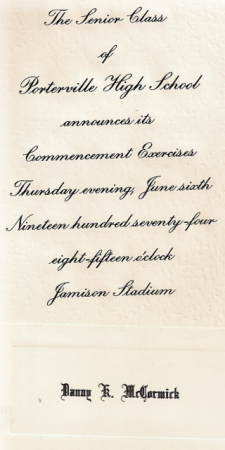 The Senior Class
of
Porterville High School
announces its
Commencement Exercises
Thursday evening, June sixth
Nineteen hundred seventy-four
eight-fifteen o'clock
Jamison Stadium
Danny K. McCormick